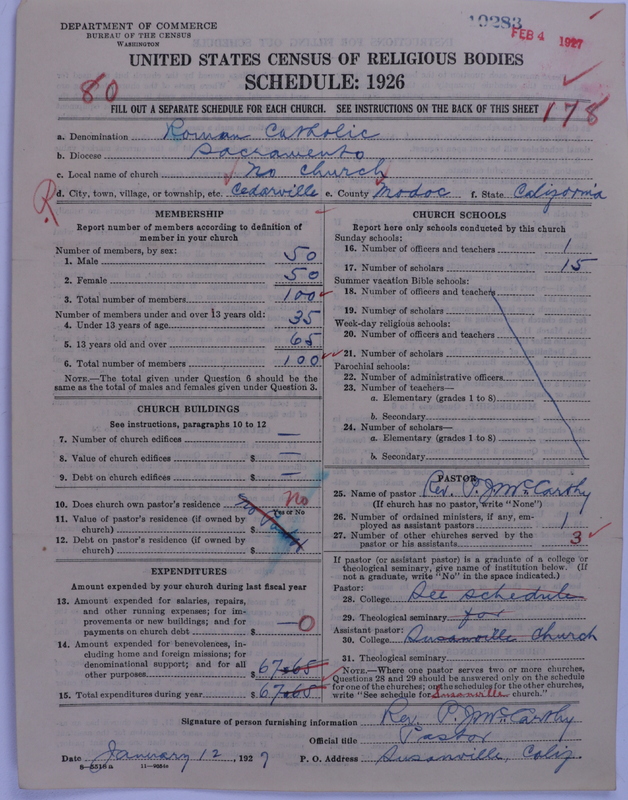 DEPARTMENT OF COMMERCE
BUREAU OF THE CENSUS
WASHINGTON
19283
FEB 4 1927
UNITED STATES CENSUS OF RELIGIOUS BODIES
SCHEDULE: 1926
80
FILL OUT A SEPARATE SCHEDULE FOR EACH CHURCH. SEE INSTRUCTIONS ON THE BACK OF THIS SHEET
178
a. Denomination Roman Catholic
b. Diocese Sacramento
c. Local name of church No Church
R
d. City, town, village, or township, etc. Cedarville e. County Modoc f. State California
MEMBERSHIP
Report number of members according to definition of member in your church
Number of members, by sex:
1. Male 50
2. Female 50
3. Total number of members 100
Number of members under and over 13 years old:
4. Under 13 years of age 35
5. 13 years old and over 65
6. Total number of members 100
NOTE.—The total given under Question 6 should be the
same as the total of males and females given under Question 3.
CHURCH BUILDINGS
See instructions, paragraphs 10 to 12
7. Number of church edifices —
8. Value of church edifices $ —
9. Debt on church edifices $ —
10. Does church own pastor's residence No
Yes or No
11. Value of pastor's residence (if owned by
church) $
12. Debt on pastor's residence (if owned by
church) $
EXPENDITURES
Amount expended by your church during last fiscal year
13. Amount expended for salaries, repairs,
and other running expenses; for im-
provements or new buildings; and for
payments on church debt $ —0
14. Amount expended for benevolences, in-
cluding home and foreign missions; for
denominational support; and for all
other purposes $ 67.65
15. Total expenditures during year $ 67.65
CHURCH SCHOOLS
Report here only schools conducted by this church
Sunday schools:
16. Number of officers and teachers 1
17. Number of scholars 15
Summer vacation Bible schools:
18. Number of officers and teachers
19. Number of scholars
Week-day religious schools:
20. Number of officers and teachers
21. Number of scholars
Parochial schools:
22. Number of administrative officers
23. Number of teachers—
a. Elementary (grades 1 to 8)
b. Secondary
24. Number of scholars—
a. Elementary (grades 1 to 8)
b. Secondary
PASTOR
25. Name of pastor Rev. P. J. McCarthy
(If church has no pastor, write "None")
26. Number of ordained ministers, if any, em-
ployed as assistant pastors 1
27. Number of other churches served by the
pastor or his assistants 3
If pastor (or assistant pastor) is a graduate of a college or
theological seminary, give name of institution below. (If
not a graduate, write "No" in the space indicated.)
Pastor:
28. College See schedule
29. Theological seminary for
Assistant pastor:
30. College Susanville Church
31. Theological seminary
NOTE.—Where one pastor serves two or more churches,
Questions 28 and 29 should be answered only on the schedule
for one of the churches; on the schedules for the other churches,
write "See schedule for Susanville church."
Signature of person furnishing information Rev. P. J. McCarthy
Official title Pastor
Date January 12, 1927 P. O. Address Susanville, Calif.
8-5518a 11-9654